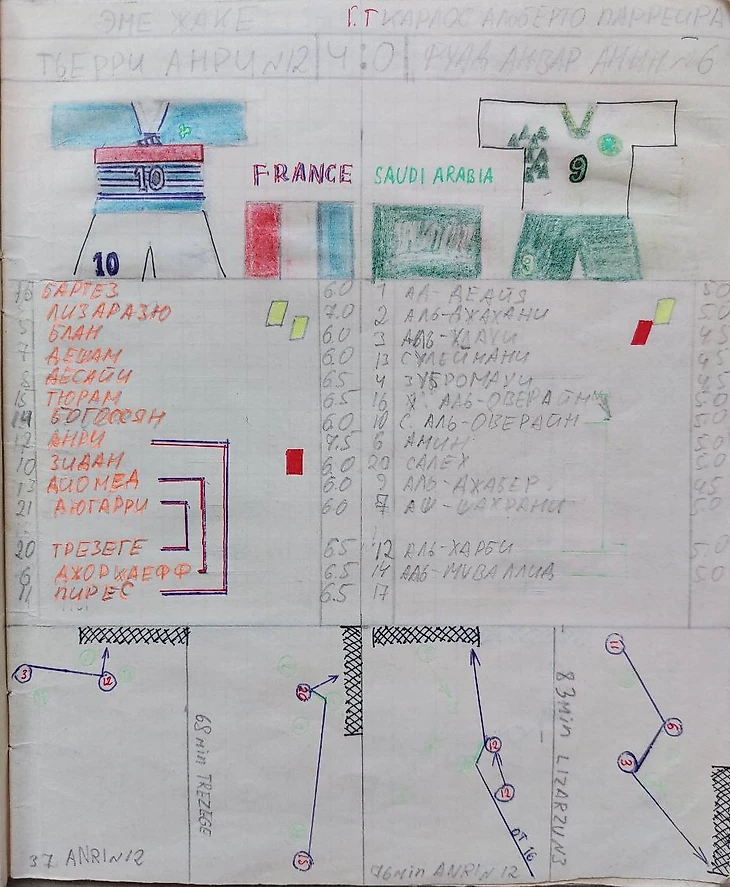 ЭМЕ ЖАКЕ Г.Т КАРЛОС АЛЬБЕРТО ПАРРЕЙРА
ТЬЕРРИ АНРИ N12 4:0 ФУАД АНВАР АМЫН N6
10
10
FRANCE
SAUDI ARABIA
9
16 БАРТЕЗ 6.0 1 АД-ДЕАЙЯ 5.0
3 ЛИЗАРАЗЮ 7.0 2 АЛЬ-ДЖАХАНИ 5.0
5 БЛАН 6.0 3 4.5
7 ДЕШАМ 6.0 13 СУЛЕЙМАНИ 4.5
8 ДЕСАЙИ 6.5 4 ЗУБРОМАУИ 4.5
15 ТЮРАМ 6.5 16 Х. АЛЬ-ОВЕРАЙН 5.0
14 БОГОССЯН 6.0 10 С. АЛЬ-ОВЕРАЙН 5.0
12 АНРИ 7.5 6 АМИН 5.0
10 ЗИДАН 6.0 20 САЛЕХ 5.0
13 ДИОМЕД 6.0 9 АЛЬ-ДЖАБЕР 4.5
21 ДЮГАРРИ 6.0 7 АШ-ШАХРАНИ 5.0
20 ТРЕЗЕГЕ 6.5 12 АЛЬ-ХАРБИ 5.0
6 ДЖОРКАЕФФ 6.5 14 ААЬ-МУВАЛЛИД 5.0
11 ПИРЕС 6.5 17
3
12
37 ANRI N12
68 min TREZEGE
20
15
12
12
от 16
76 min ANRI N 12
83 min LIZARZU N3
11
6
3